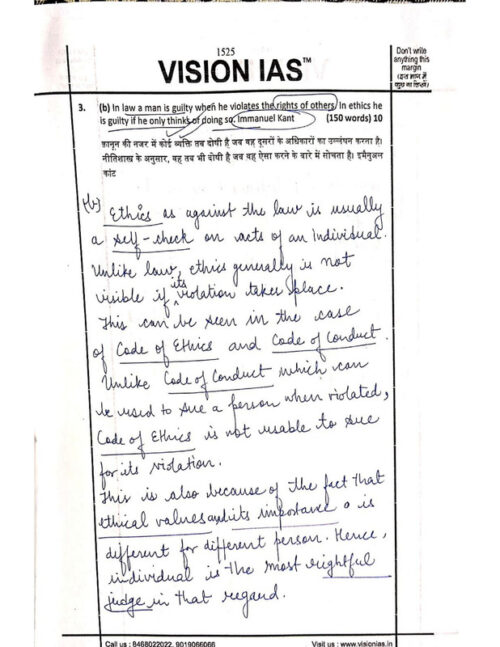 1525
VISION IAS™
Don't write
anything this
margin
(इस भाग में
कुछ ना लिखें)
3. (b) In law a man is guilty when he violates the rights of others. In ethics he
is guilty if he only thinks of doing so. Immanuel Kant (150 words) 10
क़ानून की नजर में कोई व्यक्ति तब दोषी है जब वह दूसरों के अधिकारों का उल्लंघन करता है।
नीतिशास्त्र के अनुसार, वह तब भी दोषी है जब वह ऐसा करने के बारे में सोचता है। इमैनुअल
कांट
(b) Ethics as against the law is usually
a self-check on acts of an individual.
Unlike law, ethics generally is not
visible if its violation takes place.
This can be seen in the case
of Code of Ethics and Code of Conduct.
Unlike Code of Conduct which can
be used to sue a person when violated,
Code of Ethics is not usable to sue
for its violation.
This is also because of the fact that
ethical values and its importance is
different for different person. Hence,
individual is the most rightful
judge in that regard.
Call us : 8468022022, 9019066066
Visit us : www.visionias.in